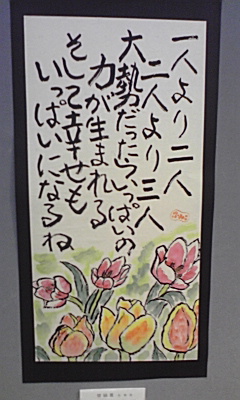 一人より二人
二人より三人
大勢だったらいっぱいの
力が生まれる
そして幸せも
いっぱいになるね